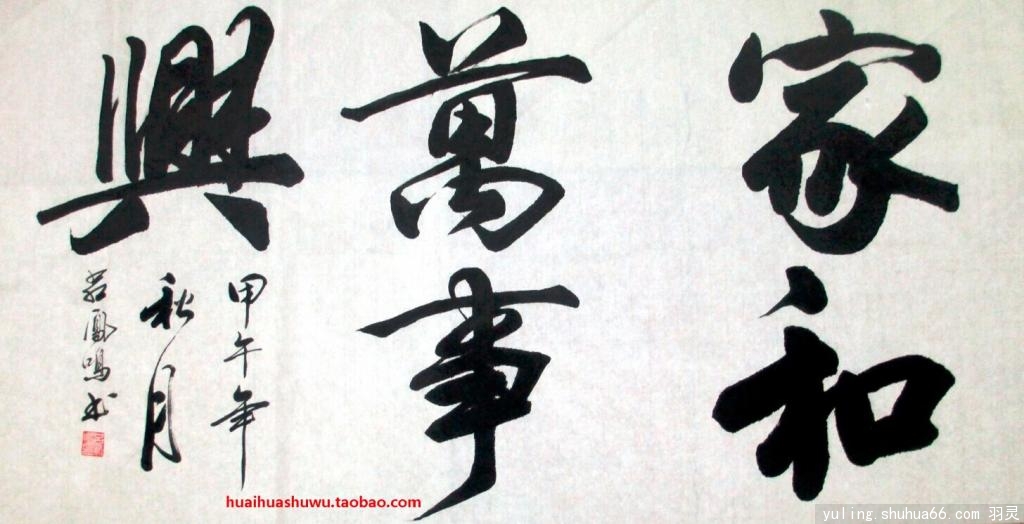 家和
萬事
興
甲午年
秋月
岩鳳鳴书
huaihuashuwu.taobao.com
yuling.shuhua66.com 羽灵